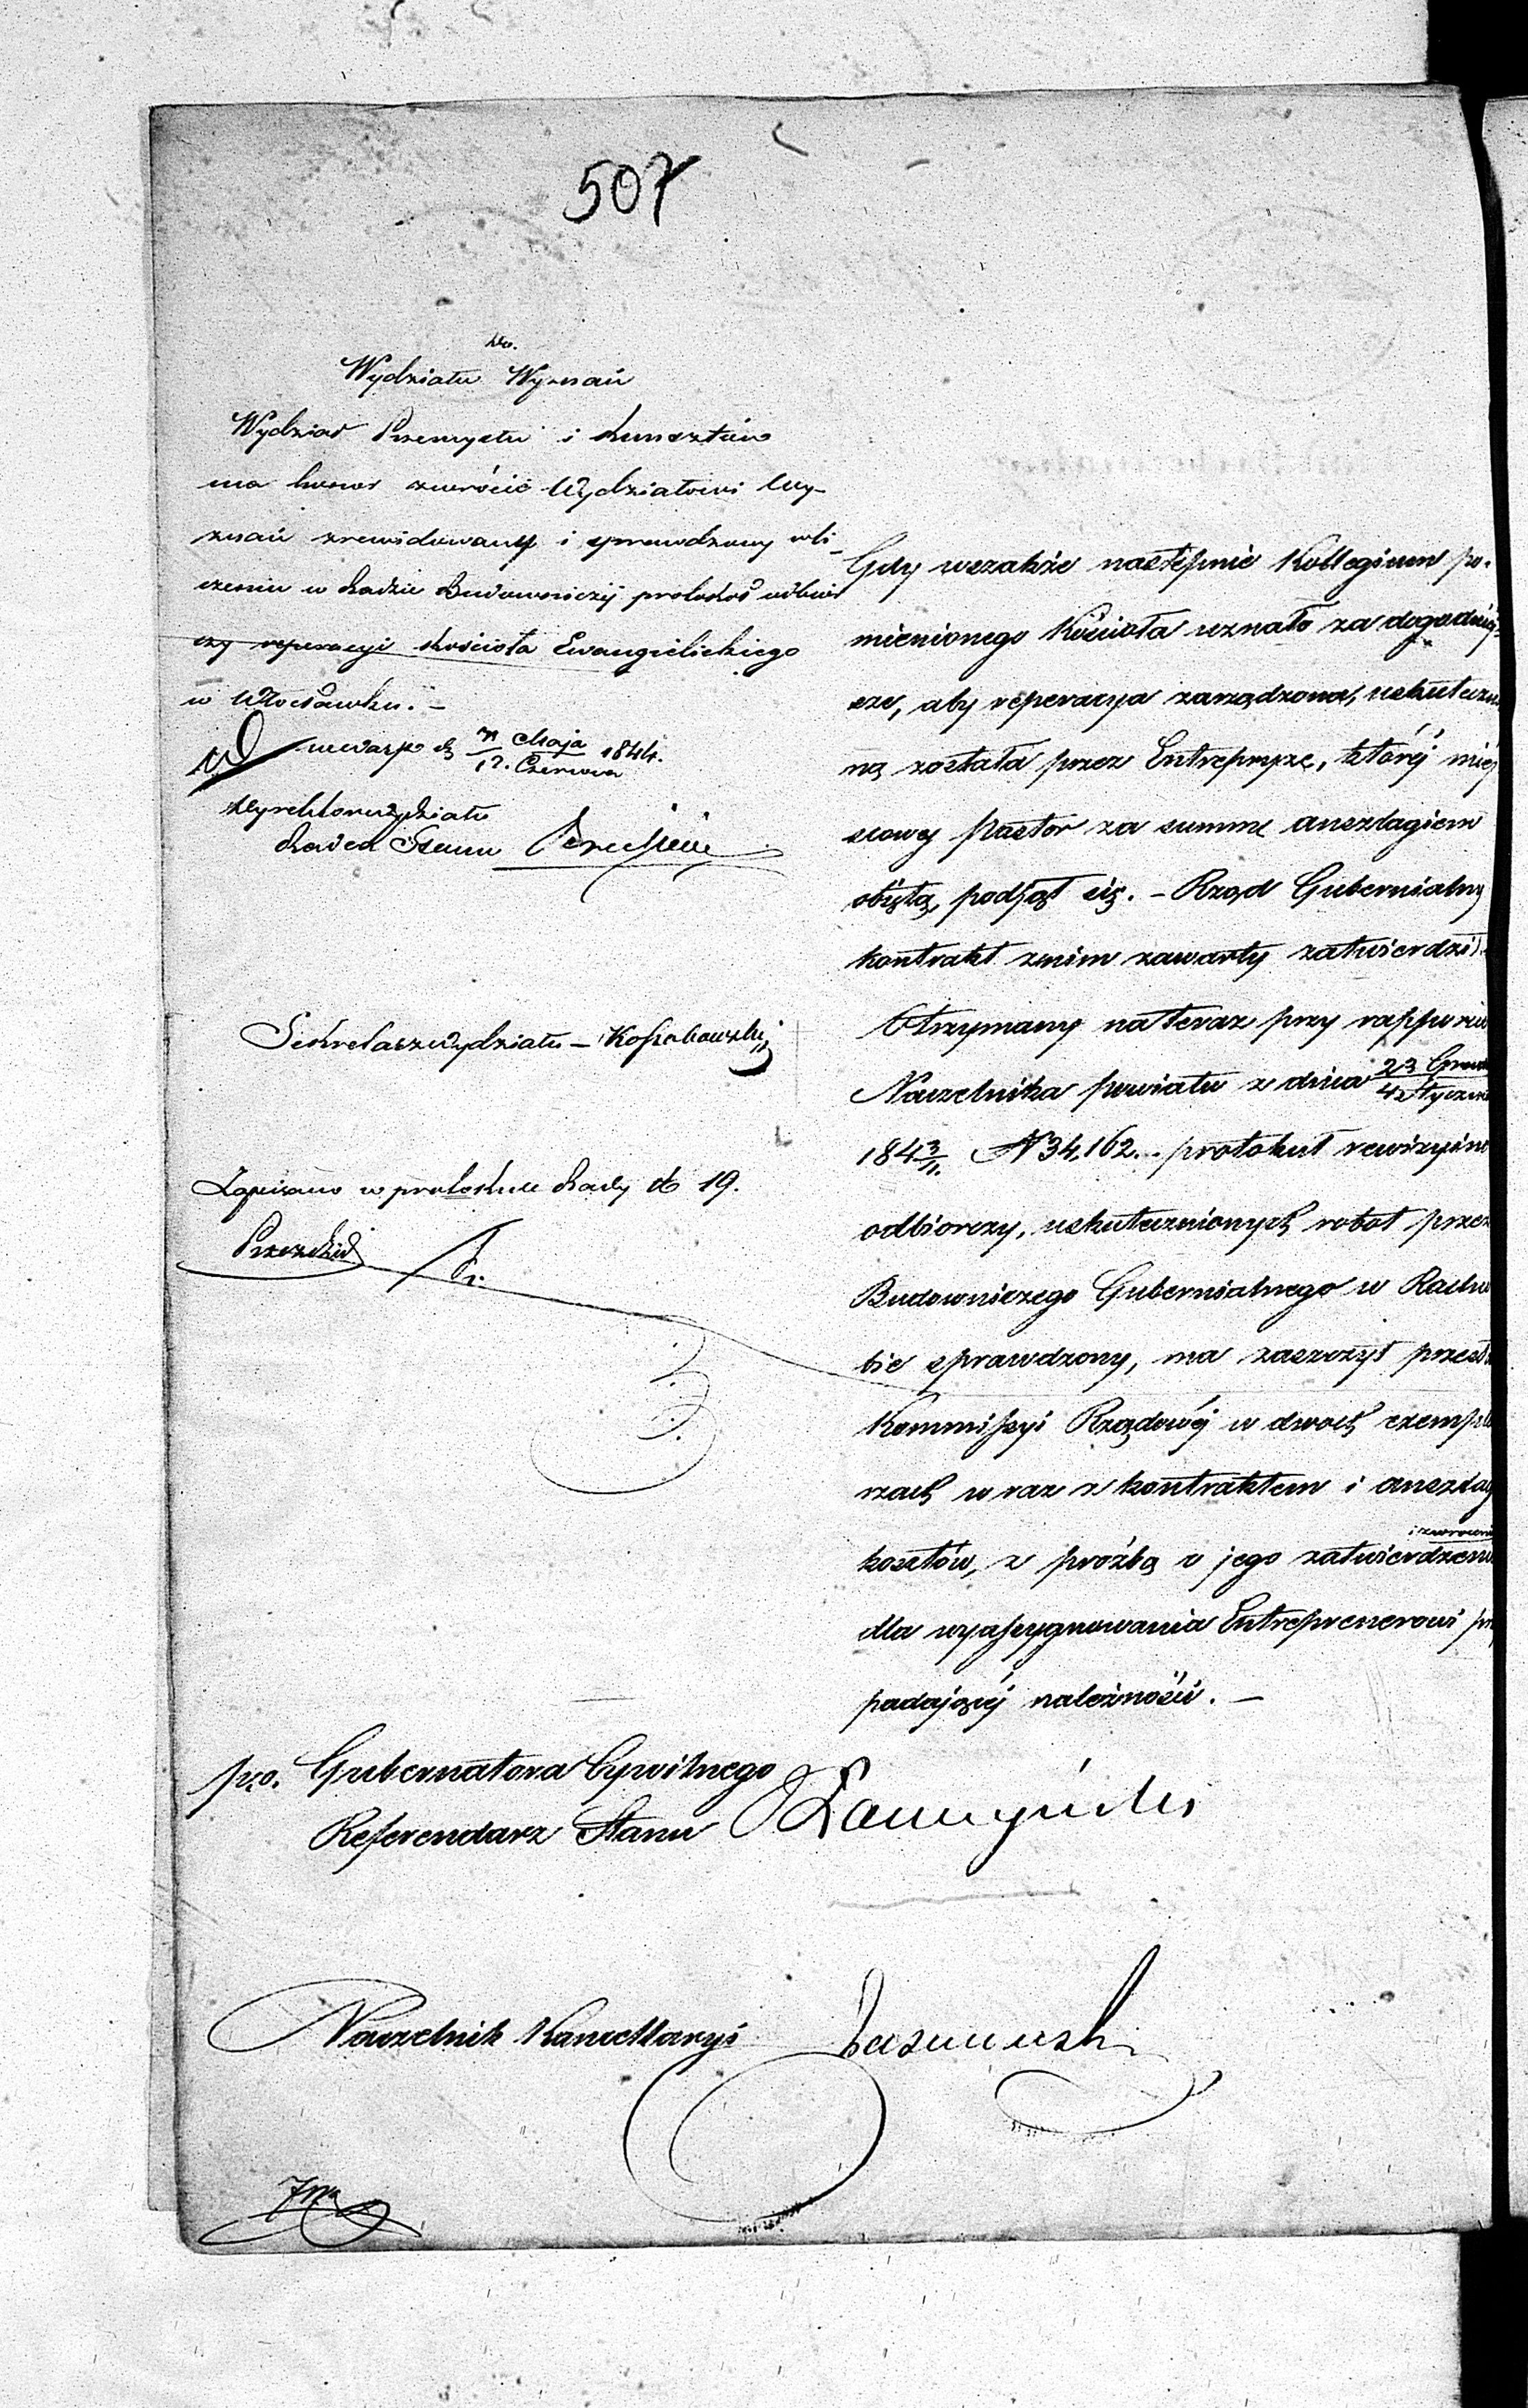 507
do.
Wydziału Wyznań
Wydział Przemysłu i Kunsztów
ma honor zwrócić Wydziałowi Wy-
znań zrewidowany i sprawdzony
w Radzie Budowniczej protokół odbior
czy reperacyi Kościoła Ewangielickiego
w Włocławku. –
w Warsz. d. Maja 1844.
12. Czerwca
Dyrektor Wydziału
Radca Stanu
Sekretarz Wydziału –
Zapisano w protokule Rady № 19.
Gdy wszakże następnie Kollegium po-
mienionego Kościoła uznało za dogodniej-
sze, aby reperacya zarządzona, uskuteczni
ną została przez Entrepryzę, której miej
scowy Pastor za summę anszlagiem
objętą, podjął się. – Rząd Gubernialny
kontrakt z nim zawarty zatwierdził.
Otrzymany na teraz przy rapporcie
Naczelnika powiatu z dnia 23 Grud
4 Stycznia
1843/4 № 34,162. protokuł rewizyino
odbiorczy, uskutecznionych robót przez
Budowniczego Gubernialnego w Rachu
bie sprawdzony, ma zaszczyt przesłać
Kommissyi Rządowéj w dwóch exempla
rzach wraz z kontraktem i anszlag
i zwrócenie
kosztów, z proźbą o jego zatwierdzenie
dla wyassygnowania Entreprenerowi przy
padającéj należności. –
p.o. Gubernatora Cywilnego
Referendarz Stanu
Naczelnik Kancellaryi